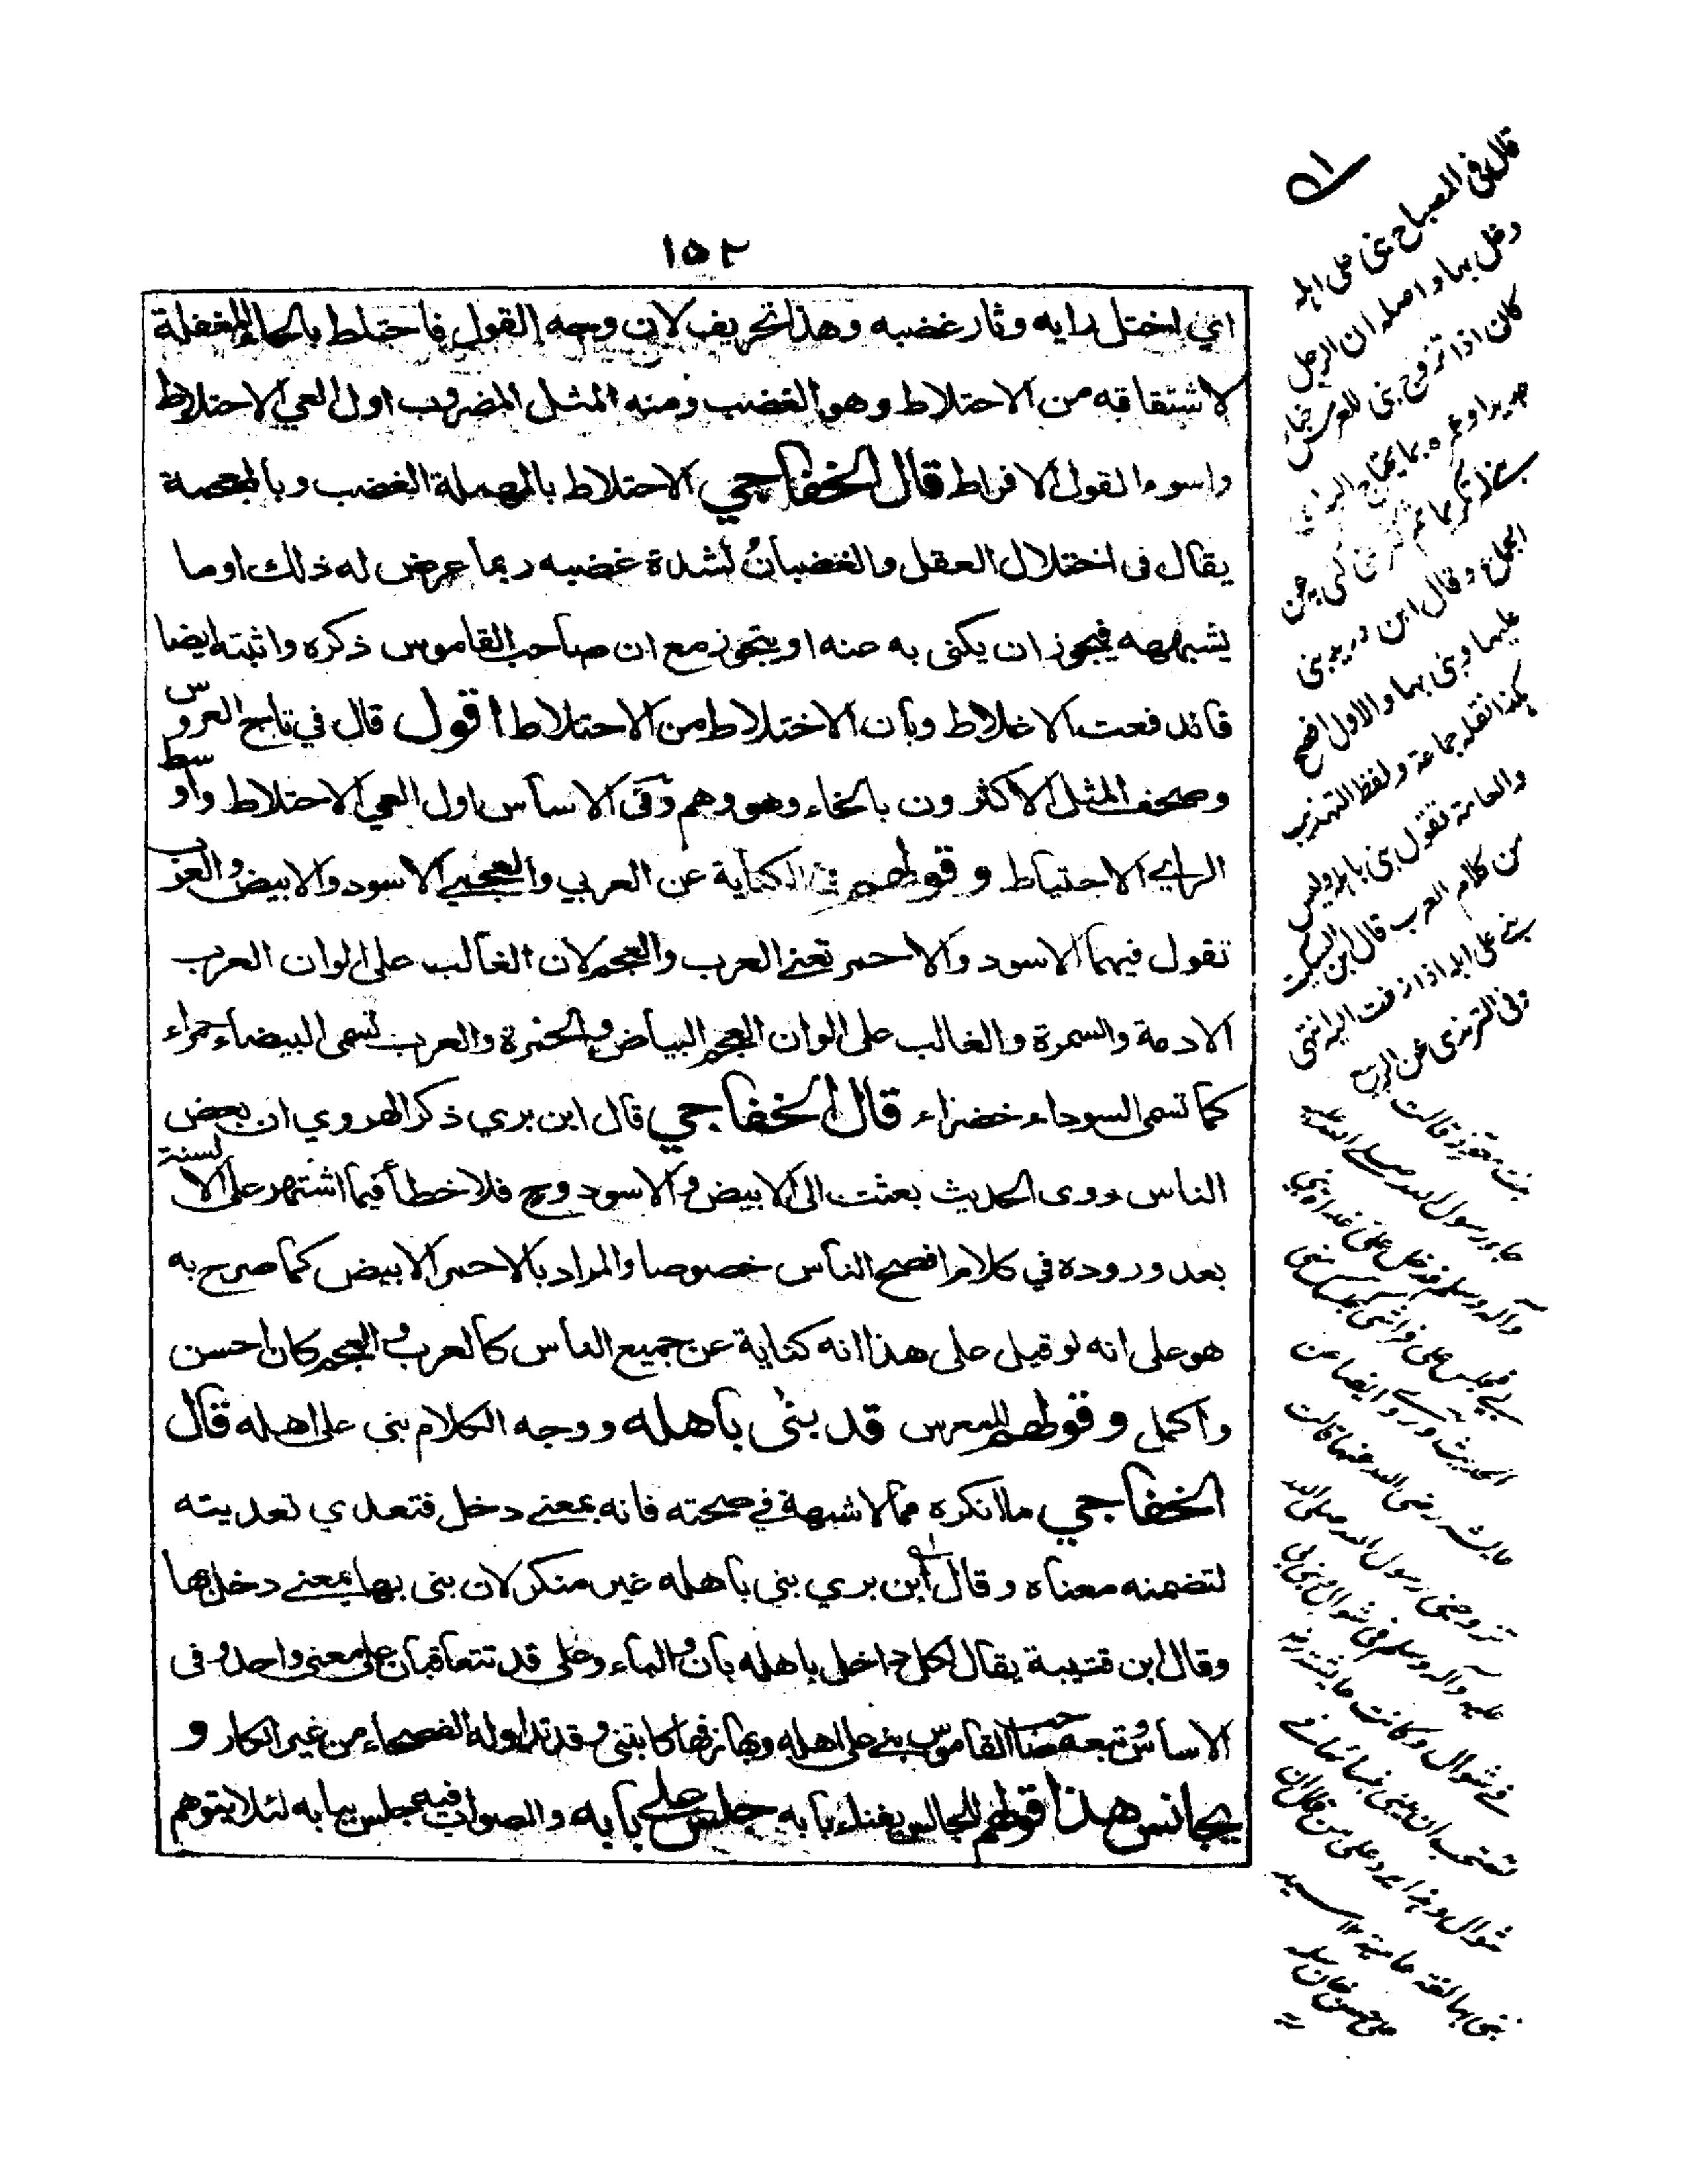 ١٥٢
اي اختل رايه وثار غضبه وهذا تحريف لان وجه القول فاحتلط بالحاء المغفلة
لاشتقاقه من الاحتلاط وهو الغضب ومنه المثل المضروب اول العي الاحتلاط
واسوء القول الافراط قال الخفاجي الاحتلاط بالمهملة الغضب وبالمعجمة
يقال فى اختلال العقل والغضبانُ لشدة غضبه ربما عرض له ذلك اوما
يشبهه فيجوز ان يكنى به عنه او يتجوز مع ان صاحب القاموس ذكره واثبته ايضا
فاندفعت الاغلاط وبان الاختلاط من الاحتلاط اقول قال في تاج العروس
وصحف المثل الاكثرون بالخاء وهو وهم وفى الاساس اول العي الاحتلاط واوسط
الراي الاحتياط وقولهم في الكناية عن العربي والعجمي الاسود والابيض والعرب
تقول فيهما الاسود والاحمر تعنے العرب والعجم لان الغالب على الوان العرب
الادمة والسمرة والغالب على الوان العجم البياض والحمرة والعرب تسمى البيضاء حمراء
كما تسمى السوداء خضراء قال الخفاجي قال ابن بري ذكر الهروي ان بعض
الناس روى الحديث بعثت الى الابيض والاسود وح فلا خطأ فيما اشتهر على الالسنة
بعد وروده في كلام افصح الناس خصوصا والمراد بالاحمر الابيض كما صرح به
هو على انه لو قيل على هذا انه كناية عن جميع الناس كالعرب والعجم كان احسن
واكمل وقولهم للمعرس قد بنى باهله ووجه الكلام بنى على اهله قال
الخفاجي ما انكره مما لا شبهة في صحته فانه بمعنے دخل فتعدي تعديته
لتضمنه معناه وقال ابن بري بني باهله غير منكر لان بنى بها بمعنے دخل بها
وقال ابن قتيبة يقال لكل داخل باهله بان والباء وعلى قد تتعاقبان على معنى واحد وفى
الاساس وتبعه صاحب القاموس بنے على اهله وبها زفها كابتنى وقد تداوله الفصحاء من غير انكار و
يجانس هذا قولهم للجالس بفناء بابه جلس على بابه والصواب فيه جلس ببابه لئلا يتوهم
قال فى المصباح بنى على اهله
دخل بها واصله ان الرجل
كان اذا تزوج بنى للعرس خباء
جديدا وعمره بما يحتاج اليه
الجماع وقال ابن دريد بنى
عليها وبنى بها والاول افصح
هكذا نقله جماعة ولفظ التهذيب
والعامة تقول بنى باهله وليس
من كلام العرب قال ابن السكيت
بنى على اهله اذا زفت اليه انتهى
وفى الترمذى عن الربيع
بنت معوذ قالت
جاء رسول الله صلے الله عليه
وآله وسلم فدخل على غداة بني
بي فجلس على فراشي
الحديث وروے ايضا عن
عايشة رضى الله عنها قالت
تزوجنى رسول الله صلى الله
عليه وآله وسلم فى شوال وبنى بي
فے شوال وكانت عايشة
تستحب ان يبنى بنسائها فے
شوال